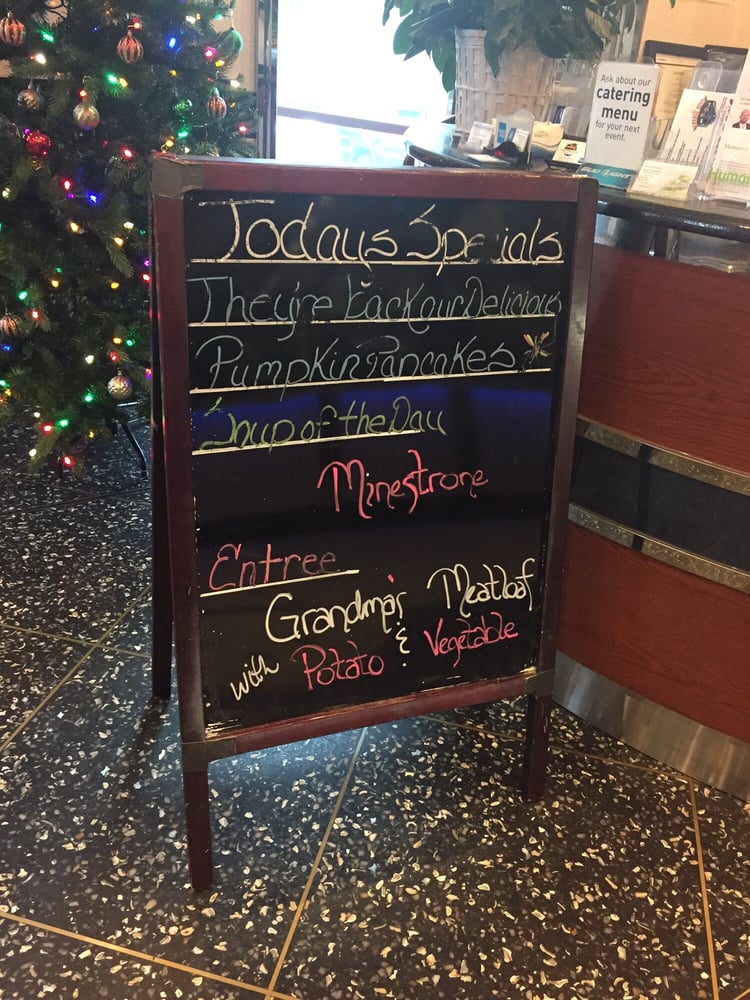 Todays Specials
They're back our Delicious
Pumpkin Pancakes
Soup of the Day
Minestrone
Entree
Grandma's Meatloaf
with Potato & Vegetable
Ask about our
catering
menu
for your next
event.
BUD LIGHT
Human